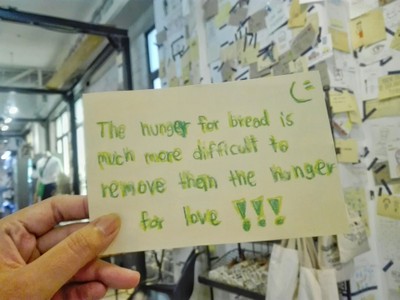 (=
The hunger for bread is
much more difficult to
remove than the hunger
for love !!!